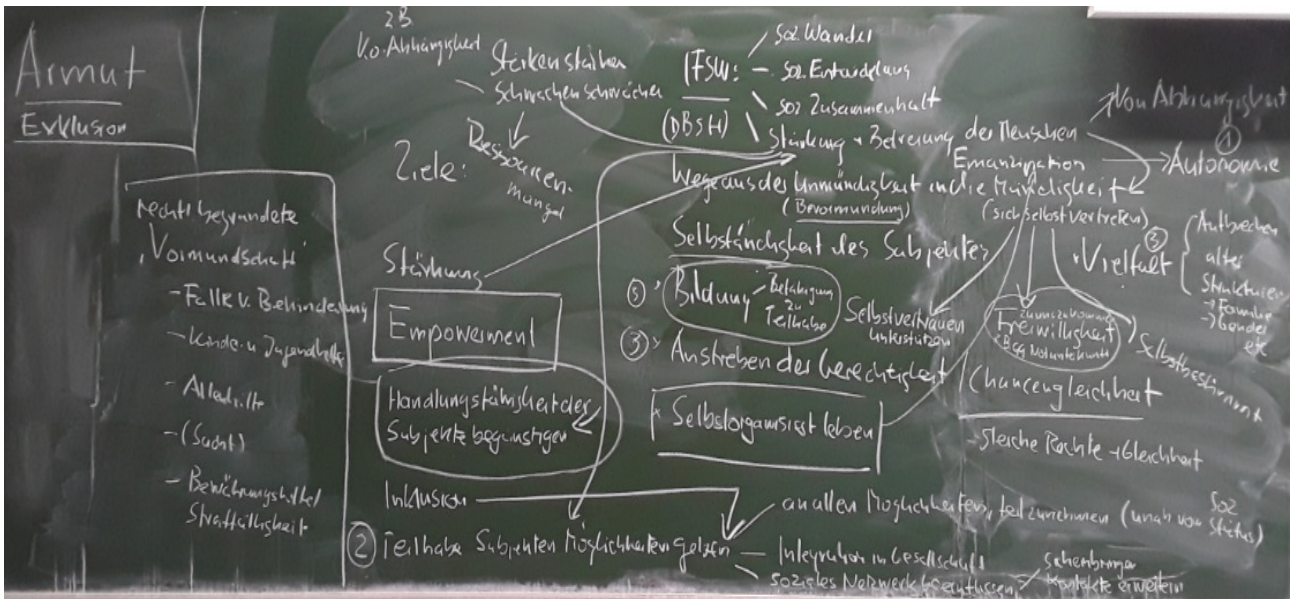 Armut
Exklusion
rechtl. begründete
Vormundschaft
- Fälle v. Behinderung
- Kinder u Jugendhilfe
- Altenhilfe
- (Sucht)
- Bewährungshilfe/
Straffälligkeit
z.B.
v.o. Abhängigkeit
Stärken stärken
Schwächen schwächen
Ressourcen-
mangel
Ziele:
Stärkung
Empowerment
Handlungsfähigkeit der
Subjekte begünstigen
Inklusion
② Teilhabe Subjekten Möglichkeiten geben
IFSW:
(DBSH)
soz. Wandel
- soz. Entwicklung
soz Zusammenhalt
Stärkung + Befreiung der Menschen
Emanzipation
Von Abhängigkeit
①
Autonomie
Wege aus der Unmündigkeit in die Mündigkeit
(Bevormundung)
(sich selbst vertreten)
Selbständigkeit des Subjektes
⑤ Bildung
Befähigung
zu
Teilhabe
Selbstvertrauen
unterstützen
③ Anstreben der Gerechtigkeit
Selbstorganisiert leben
Vielfalt ③
Aufbrechen
alter
Strukturen
→ Familie
→ Gender
etc
Freiwilligkeit
Selbstbestimmt
Chancengleichheit
- gleiche Rechte + Gleichheit
an allen Möglichkeiten teilzunehmen (unab. von Soz Status)
- Integration in Gesellschaft
soziales Netzwerk beeinflussen
Kontakte erweitern